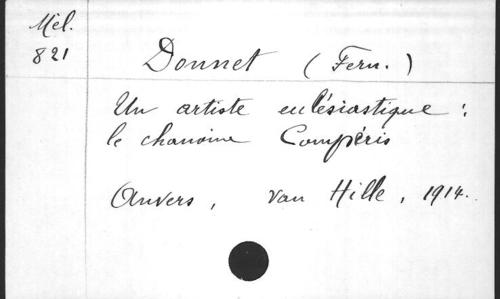 Mél.
821
Donnet (Fern.)
Un artiste ecclésiastique :
le chanoine Compéris
Anvers, van Hille, 1914.